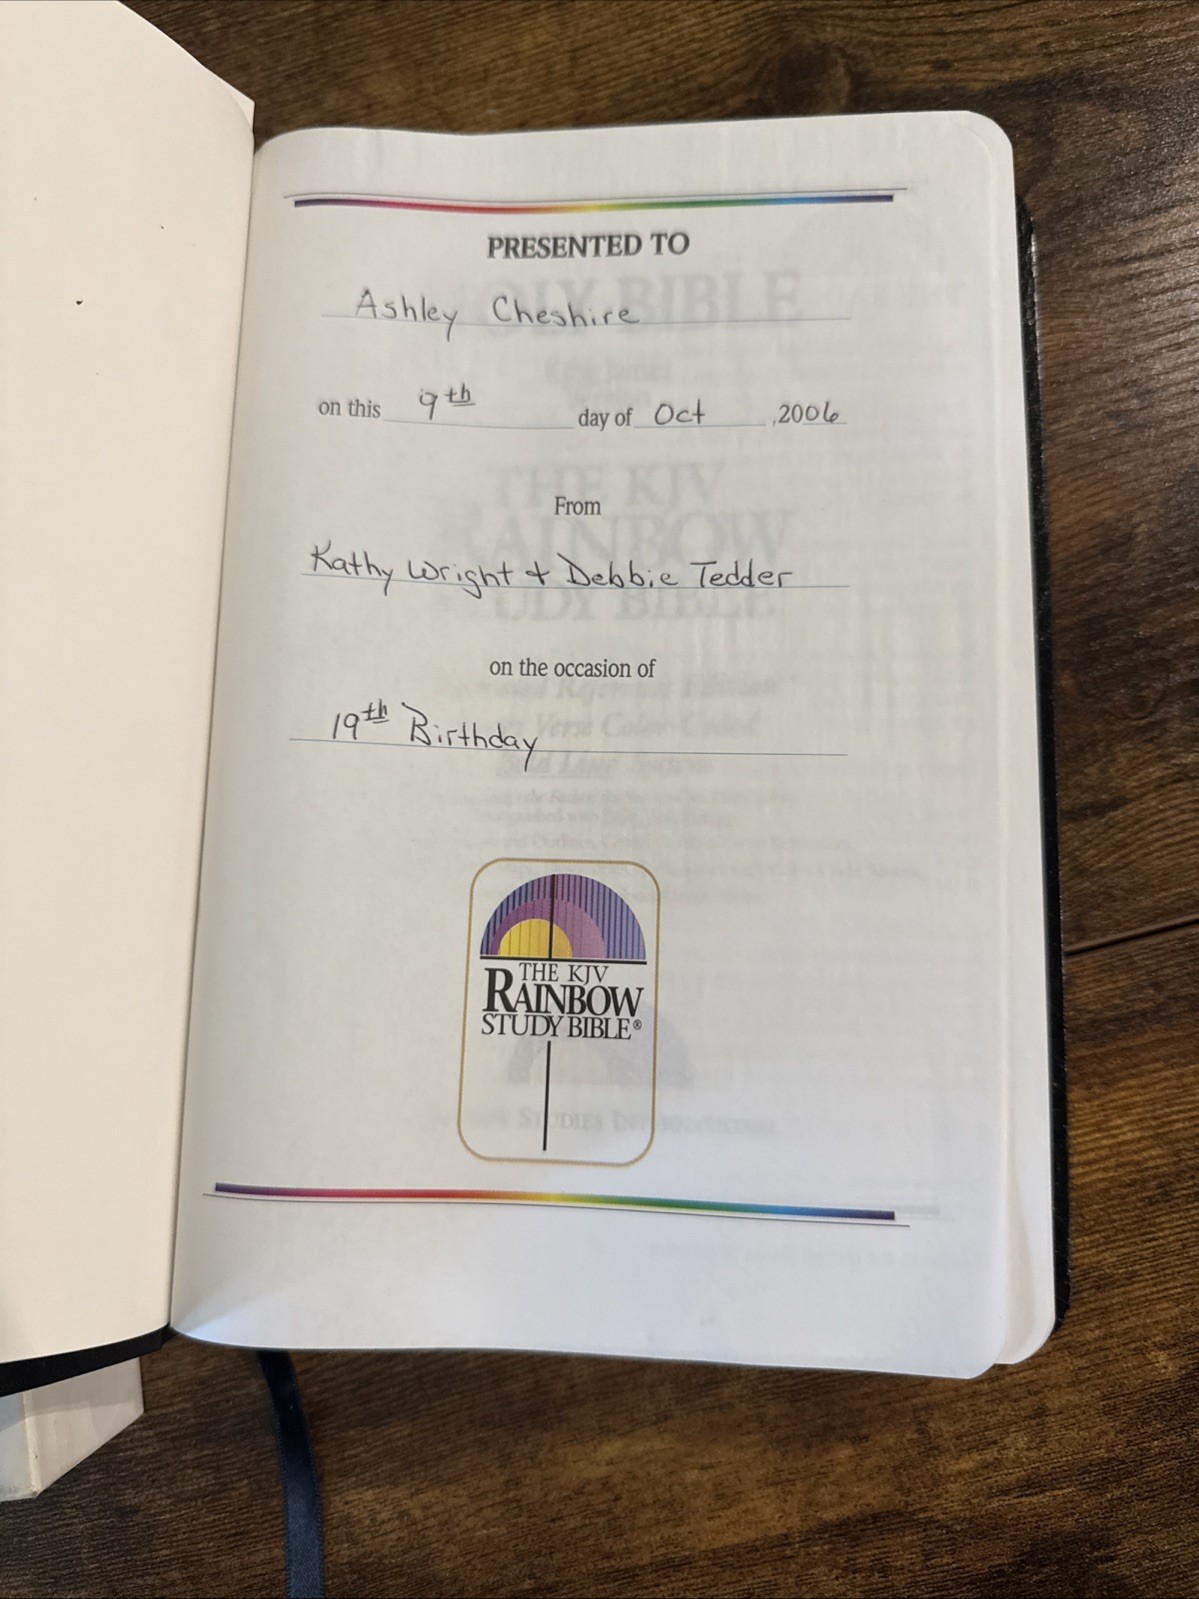 PRESENTED TO
Ashley Cheshire
on this 9th day of Oct ,2006
From
Kathy Wright & Debbie Tedder
on the occasion of
19th Birthday
THE KJV
RAINBOW
STUDY BIBLE®